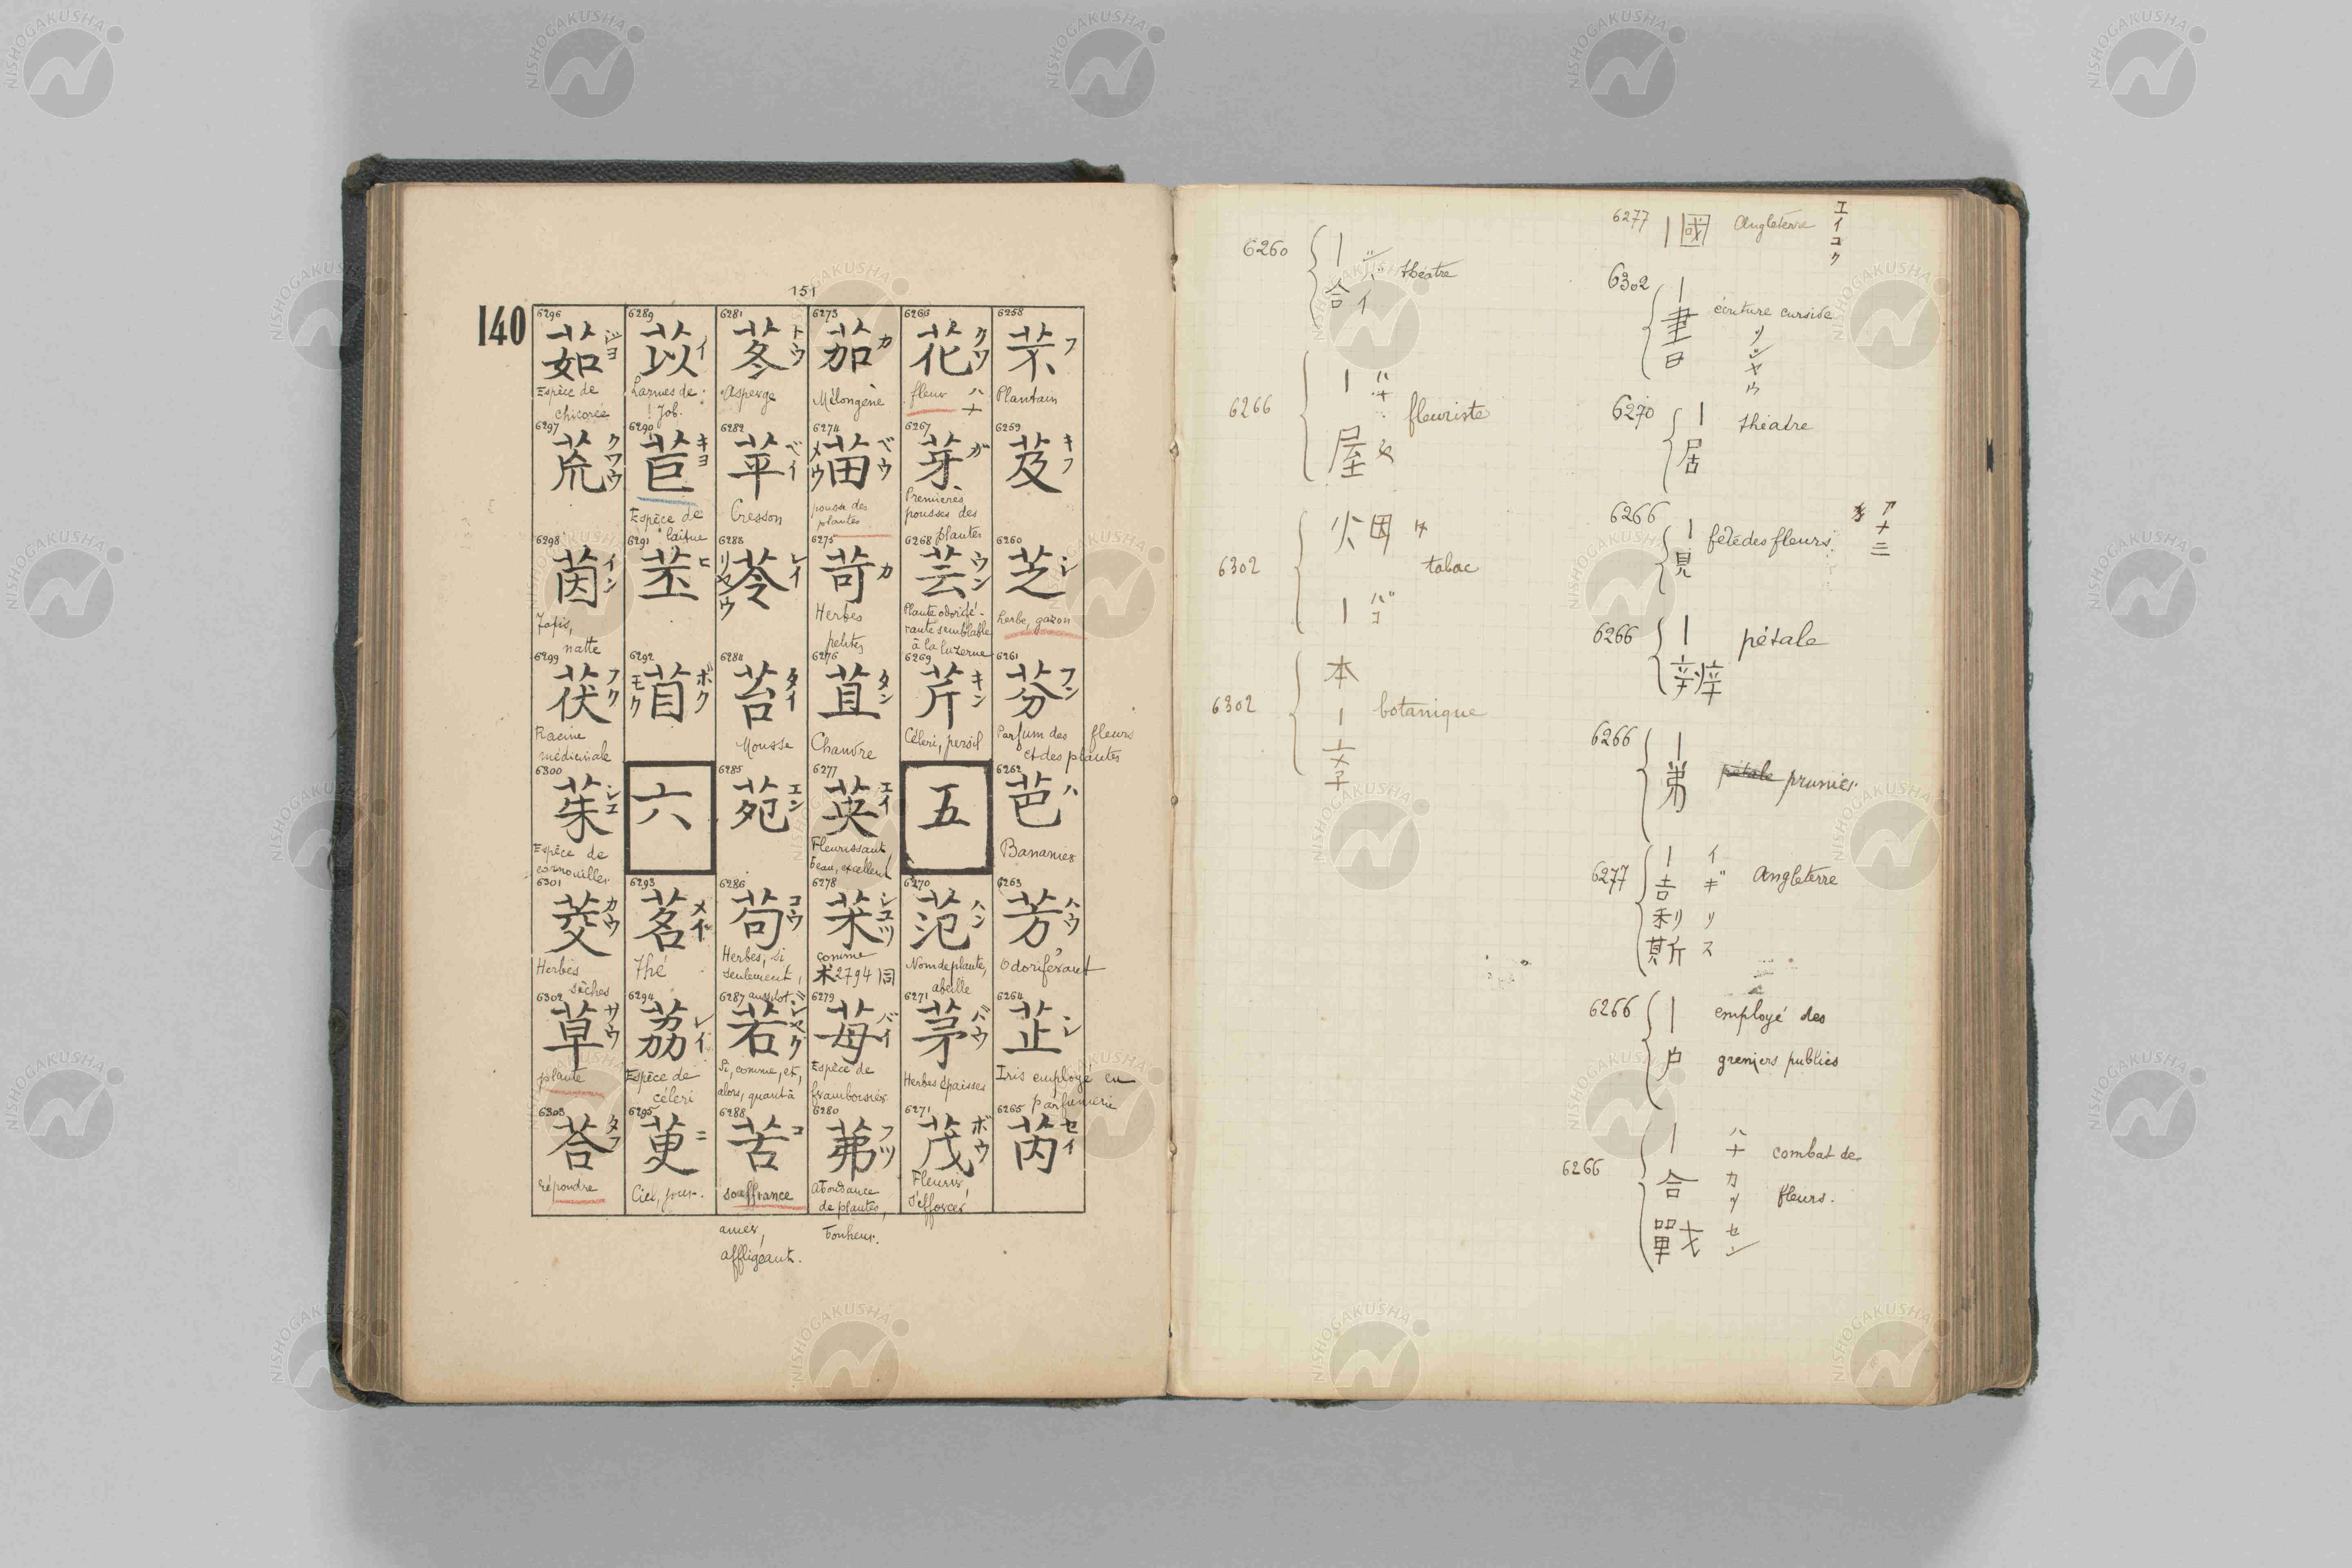 151
140
6258
芣
フ
Plantain
6259
芨
キフ
6260
芝
シ
herbe, gazon
6261
芬
フン
Parfum des fleurs
et des plantes
6262
芭
ハ
Bananier
6263
芳
ハウ
Odoriférant
6264
芷
シ
Iris employé en
parfumerie
6265
芮
セイ
6266
花
クワ
fleur
ハナ
6267
芽
ガ
Premières
pousses des
plantes
6268
芸
ウン
Plante odorifé-
rante semblable
à la luzerne
6269
芹
キン
Céleri, persil
五
6270
范
ハン
Nom de plante,
abeille
6271
茅
バウ
Herbes épaisses
6271
茂
ボウ
Fleurir,
s'efforcer
6273
茄
カ
Mélongène
6274
苗
ベウ
メウ
pousse des
plantes
6275
苛
カ
Herbes
petites
6276
苴
タン
Chanvre
6277
英
エイ
Fleurissant
beau, excellent
6278
苿
シユツ
comme
朮2794同
6279
苺
バイ
Espèce de
framboisier
6280
茀
フツ
Abondance
de plantes,
bonheur.
6281
苳
トウ
Asperge
6282
苹
ベイ
Cresson
6283
苓
レイ
リヤウ
6284
苔
タイ
Mousse
6285
苑
エン
6286
苟
コウ
Herbes, si
seulement,
aussitôt
6287
若
ジヤク
Si, comme, et,
alors, quant à
6288
苦
コ
souffrance
amer,
affligeant.
6289
苡
イ
Larmes de
Job.
6290
苣
キヨ
Espèce de
laitue
6291
苤
ヒ
6292
苜
ボク
モク
六
6293
茗
メイ
Thé
6294
茘
レイ
Espèce de
céleri
6295
茰
ニ
Ciel, jour.
6296
茹
ジヨ
Espèce de
chicorée
6297
荒
クワウ
6298
茵
イン
Tapis,
natte
6299
茯
フク
Racine
médicinale
6300
茱
シユ
Espèce de
cornouiller
6301
茭
カウ
Herbes
sèches
6302
草
サウ
plante
6303
荅
タフ
répondre
6260
｜合
シバイ
théatre
6266
｜屋
ハナヤ
fleuriste
6302
烟｜
バコ
tabac
6302
本｜文字
botanique
6277
｜國
Angleterre
エイコク
6302
｜書
écriture cursive
ソシヤウ
6270
｜居
théatre
6266
｜見
fête des fleurs
6266
｜瓣
pétale
6266
｜弟
pétale prunier
6277
｜吉利斯
イギリス
Angleterre
6266
｜戸
employé des
greniers publics
6266
｜合戰
ハナカツセン
combat de
fleurs.